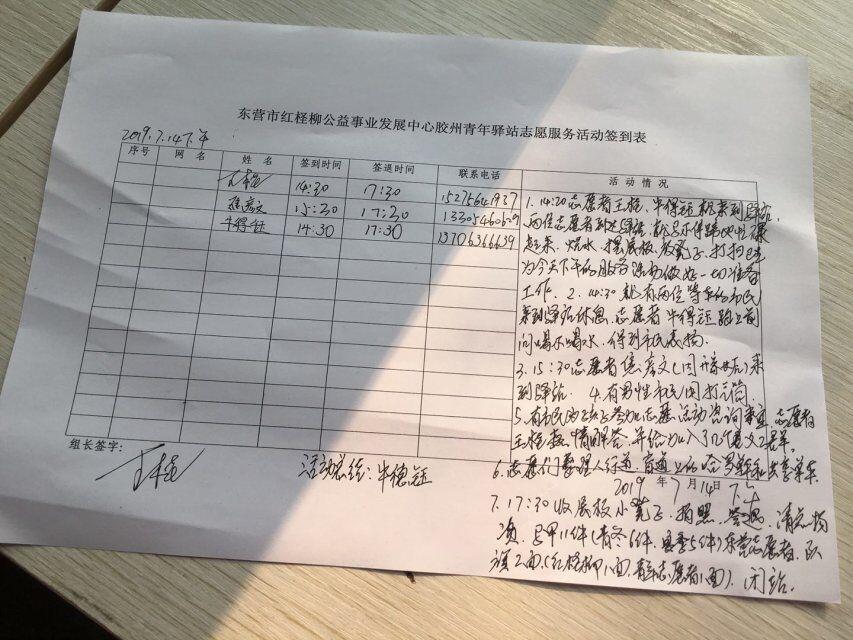 东营市红柽柳公益事业发展中心胶州青年驿站志愿服务活动签到表
2019.7.14下午
序号 网名 姓名 签到时间 签退时间 联系电话 活动情况
王桂 14:30 17:30 15275641937
彦文 15:30 17:30 13305460609
牛得钰 14:30 17:30 13706366639
1. 14:20志愿者王桂、牛得钰就来到驿站,
两位志愿者到达驿站,就顾不得
起来,烧水,摆展板,放凳子,打扫卫生
为今天下午的服务活动做好一切准备
工作. 2. 14:30就有两位等车的市民
来到驿站休息,志愿者牛得钰跑上前
问喝水喝水,得到市民表扬.
3. 15:30志愿者 彦文(因 )来
到驿站. 4. 有男性市民因打
5. 有市民 参加志愿活动咨询 志愿者
王桂 情解答,并给加入了 群.
组长签字:
王桂
活动总结:牛德钰
6. 志愿 们整理人行道,盲道上的哈罗 共享单车
2019 年 7 月 14 日 下午
7. 17:30收展板小凳子,拍照,签退,清点物
资, 马甲11件(青冬6件, 夏季5件)东营志愿者,队
旗2面(红柽柳1面,青年志愿者1面).闭站.